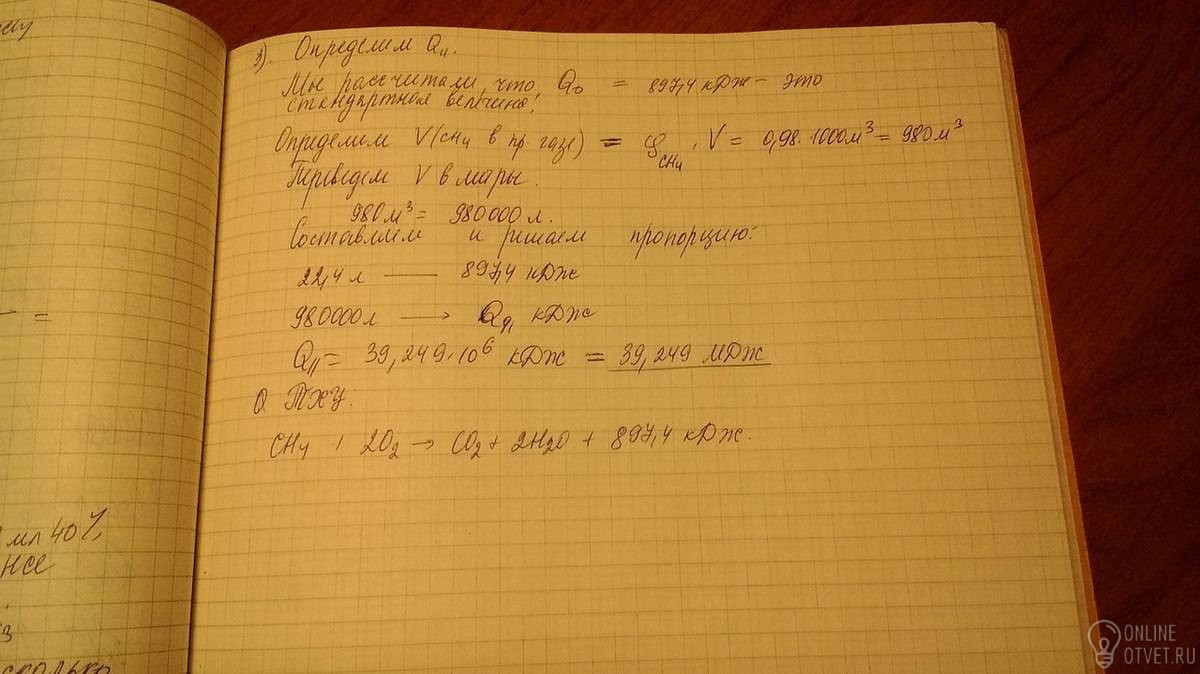 3). Определим Q11.
Мы рассчитали, что Q0 = 897,4 кДж – это
стандартная величина!
Определим V(CH4 в пр. газе) = φCH4 · V = 0,98 · 1000м³ = 980м³
Переведем V в литры.
980м³ = 980000 л.
Составляем и решаем пропорцию:
22,4 л — 897,4 кДж
980000л → кДж
Q11 = 39,249·10⁶ кДж = 39,249 МДж
ТХУ:
CH4 + 2O2 → CO2 + 2H2O + 897,4 кДж.
=
мл 40%
нсе
сколько
ONLINE
OTVET.RU